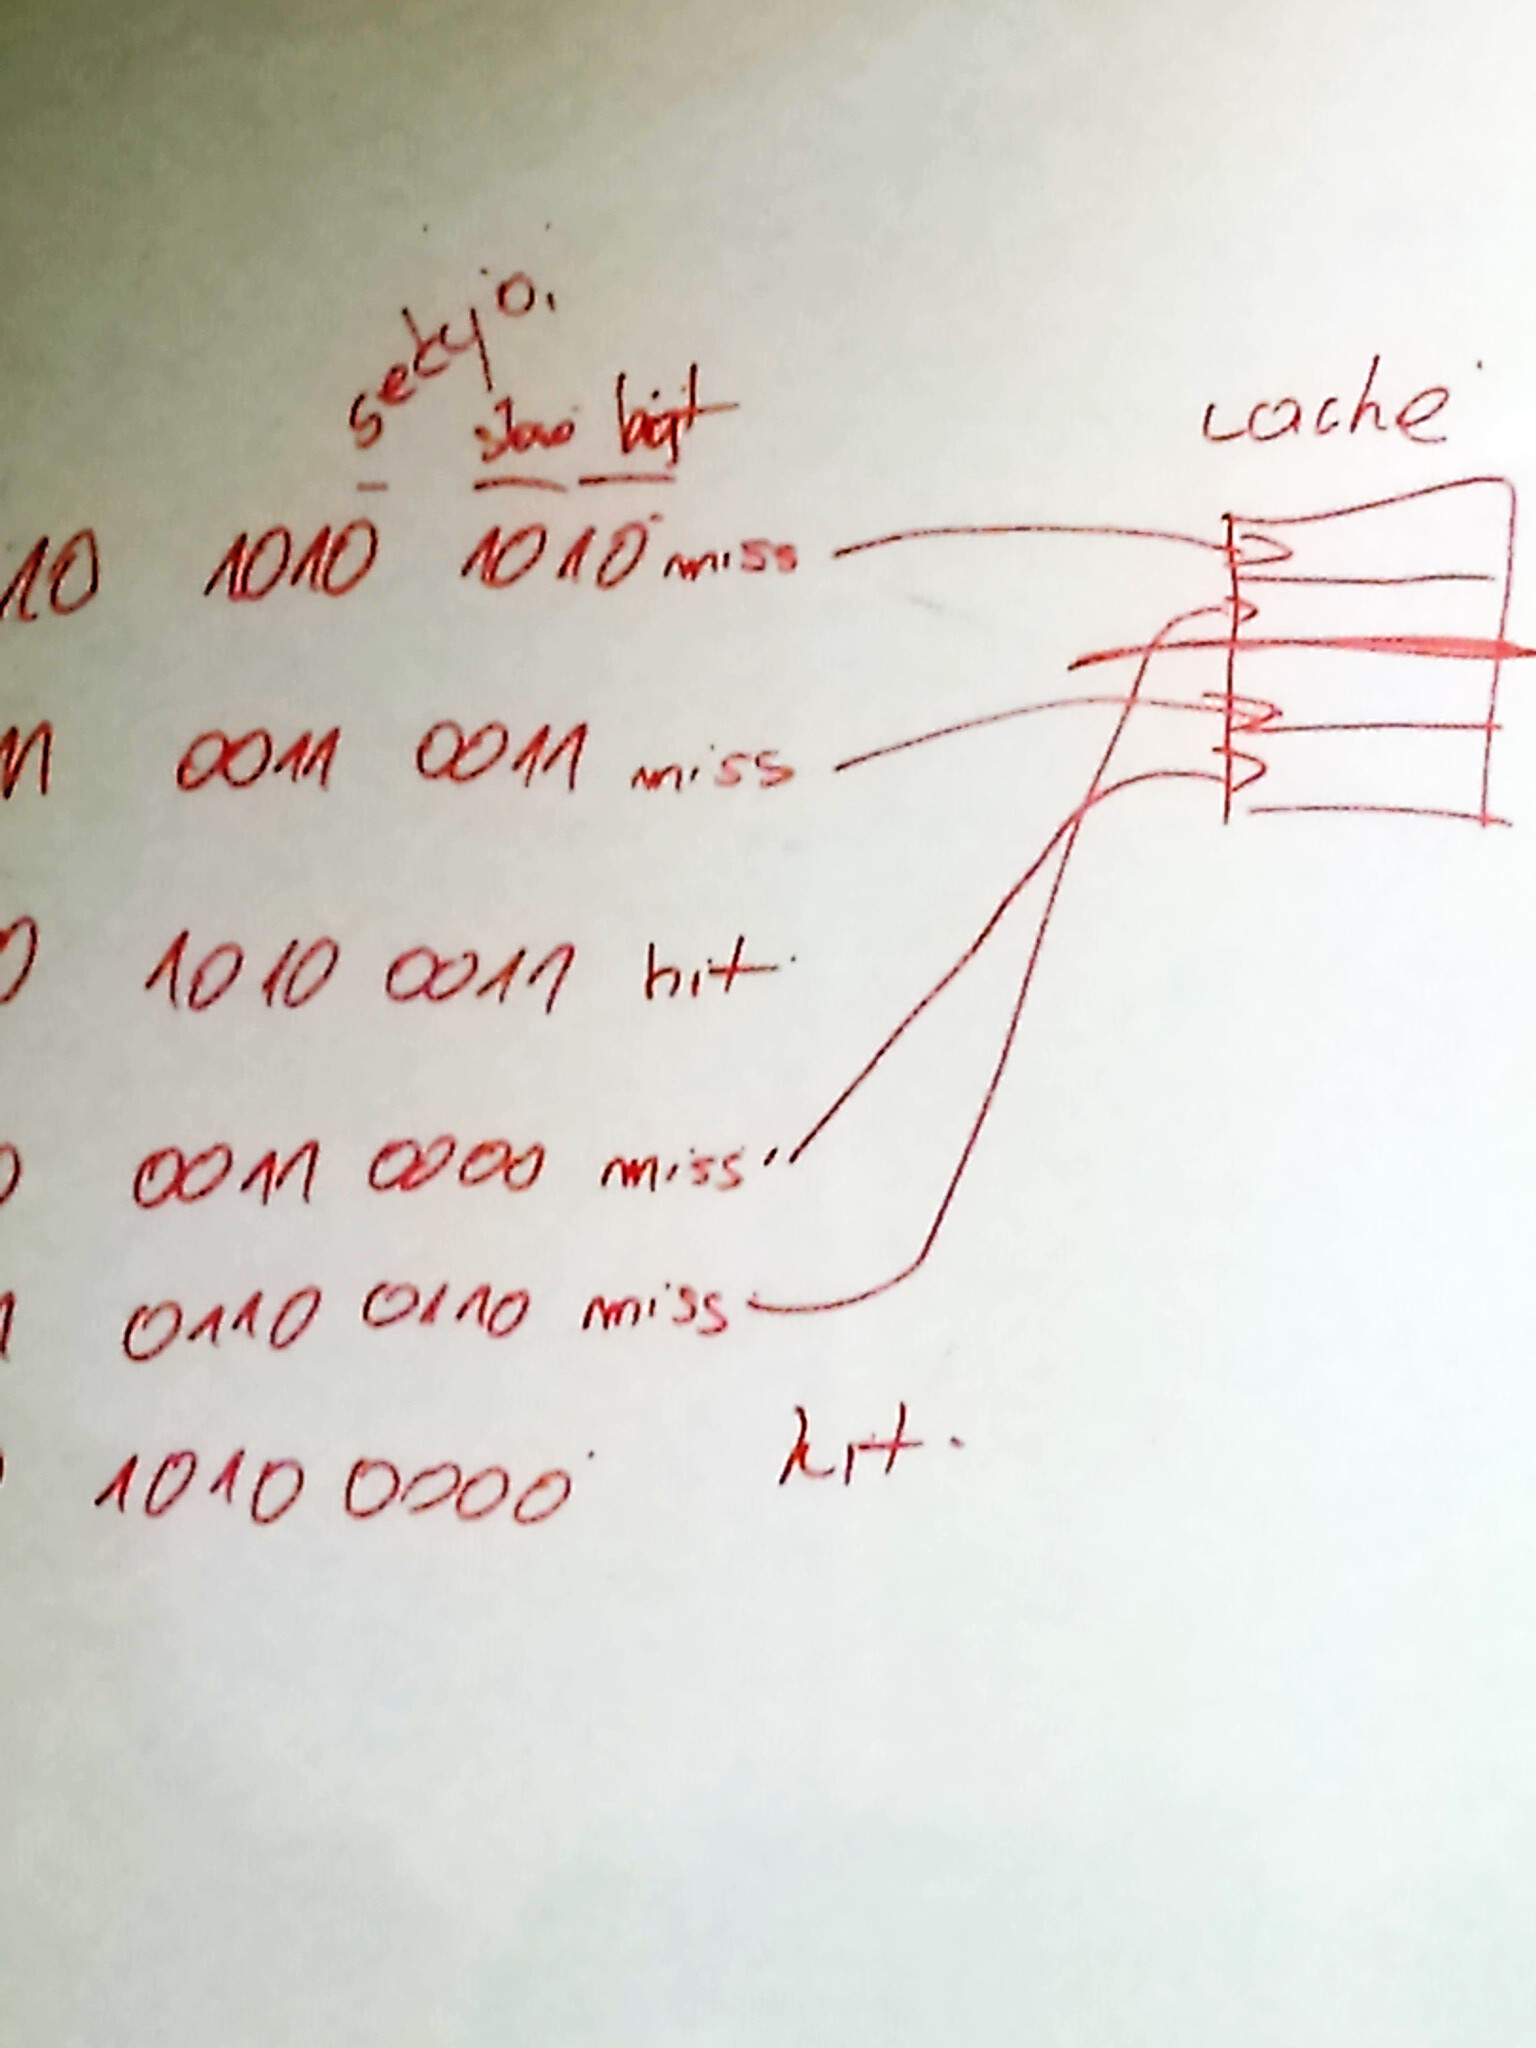 sekcja
słowo bajt
cache
10 1010 1010 miss
11 0011 0011 miss
0 1010 0011 hit
0 0011 0000 miss
1 0110 0110 miss
1010 0000 hit